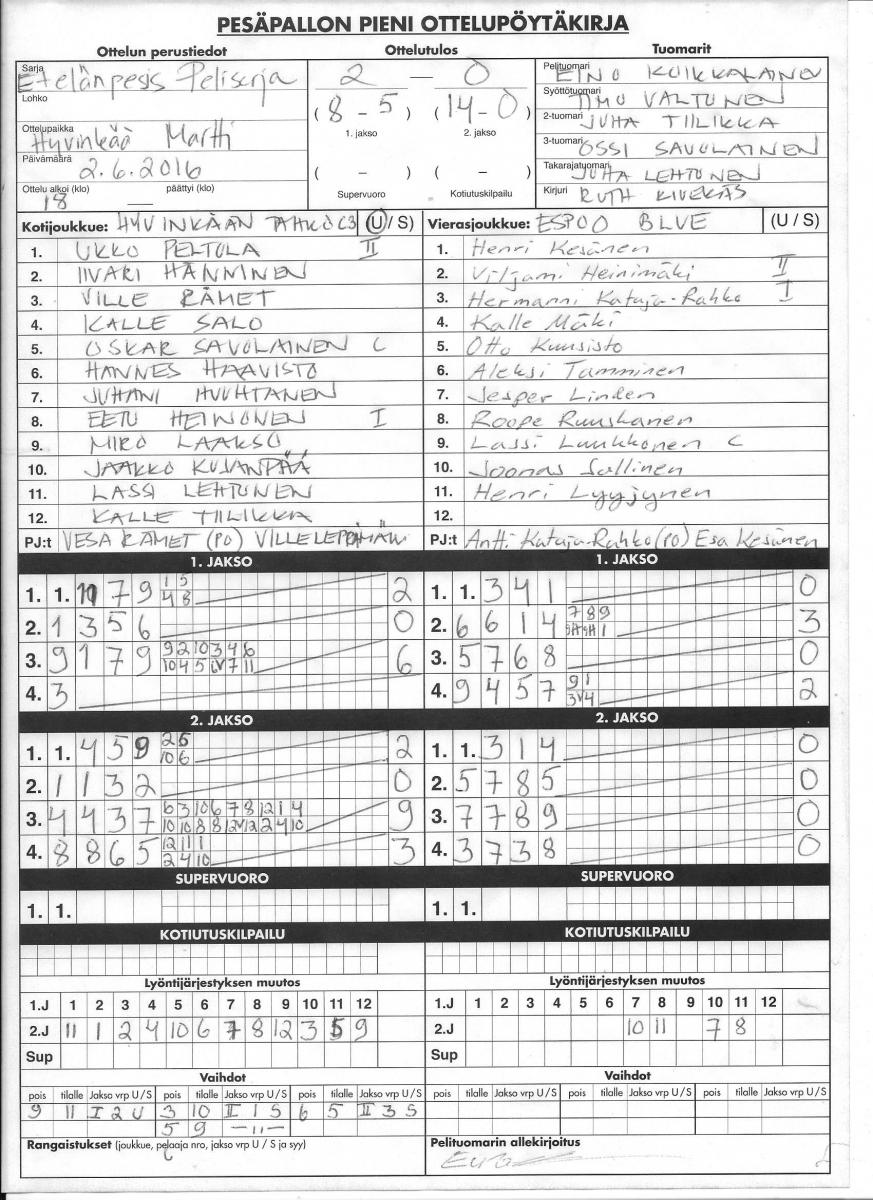 PESÄPALLON PIENI OTTELUPÖYTÄKIRJA
Ottelun perustiedot Ottelutulos Tuomarit
Sarja Etelänpesis Pelisarja
Lohko
Ottelupaikka Hyvinkää Martti
Päivämäärä 2.6.2016
Ottelu alkoi (klo) päättyi (klo)
18
2 — 0
(8 - 5) (14 - 0)
1. jakso 2. jakso
( - ) ( - )
Supervuoro Kotiutuskilpailu
Pelituomari EINO KUIKKALAINEN
Syöttötuomari TIMO VALTONEN
2-tuomari JUHA TIILIKKA
3-tuomari OSSI SAVOLAINEN
Takarajatuomari JUHA LEHTONEN
Kirjuri RUTH KIVEKÄS
Kotijoukkue: HYVINKÄÄN TAHKO C3 (U / S)
1. UKKO PELTOLA II
2. IIVARI HÄNNINEN
3. VILLE RÄMET
4. KALLE SALO
5. OSKAR SAVOLAINEN C
6. HANNES HAAVISTO
7. JUHANI HUUHTANEN
8. EETU HEINONEN I
9. MIRO LAAKSO
10. JAAKKO KUJANPÄÄ
11. LASSI LEHTONEN
12. KALLE TIILIKKA
PJ:t VESA RÄMET (PO)
Vierasjoukkue: ESPOO BLUE (U / S)
1. Henri Kesänen
2. Viljami Heinimäki II
3. Hermanni Kataja-Rahko I
4. Kalle Mäki
5. Otto Kuusisto
6. Aleksi Tamminen
7. Jesper Linden
8. Roope Ruuskanen
9. Lassi Luukkonen C
10. Joonas Sallinen
11. Henri Lyyjynen
12.
PJ:t Antti Kataja-Rahko (PO) Esa Kesänen
1. JAKSO
1. 1. 7 9 1 5 2
4 8
2. 1 3 5 6 0
3. 9 1 7 9 9 2 10 3 4 6 6
10 4 5 7 11
4. 3
1. JAKSO
1. 1. 3 4 1 0
2. 6 6 1 4 7 8 9 3
3. 5 7 6 8 0
4. 9 4 5 7 9 1 2
2. JAKSO
1. 1. 4 5 9 2 5 2
10 6
2. 1 1 3 2 0
3. 4 4 3 7 6 3 10 6 7 8 12 1 4 9
10 10 8 8 12 12 2 4 10
4. 8 8 6 5 12 1 1 3
2 4 10
2. JAKSO
1. 1. 3 1 4 0
2. 5 7 8 5 0
3. 7 7 8 9 0
4. 3 7 3 8 0
SUPERVUORO
1. 1.
SUPERVUORO
1. 1.
KOTIUTUSKILPAILU
KOTIUTUSKILPAILU
Lyöntijärjestyksen muutos
1.J 1 2 3 4 5 6 7 8 9 10 11 12
2.J 11 1 2 4 10 6 7 8 12 3 5 9
Sup
Lyöntijärjestyksen muutos
1.J 1 2 3 4 5 6 7 8 9 10 11 12
2.J 10 11 7 8
Sup
Vaihdot
pois tilalle Jakso vrp U / S pois tilalle Jakso vrp U / S pois tilalle Jakso vrp U / S
9 11 I 2 U 3 10 II 1 S 6 5 II 3 S
5 9 —"—
Rangaistukset (joukkue, pelaaja nro, jakso vrp U / S ja syy)
Vaihdot
pois tilalle Jakso vrp U / S pois tilalle Jakso vrp U / S pois tilalle Jakso vrp U / S
Pelituomarin allekirjoitus